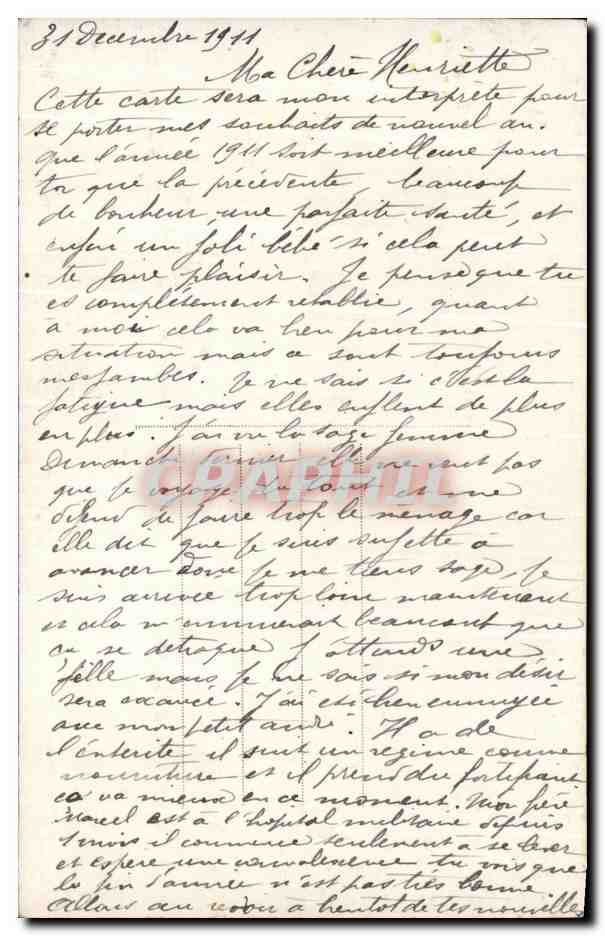 31 Decembre 1911
Ma Chère Henriette
Cette carte sera mon interprete pour
te porter mes souhaits de nouvel an.
que l'année 1911 soit meilleure pour
toi que la précédente, beaucoup
de bonheur, une parfaite santé, et
enfin un joli bébé si cela peut
te faire plaisir. Je pense que tu
es complétement retablie, quant
a moi cela va bien pour ma
situation mais ce sont toujours
mes jambes. Je ne sais si c'est la
fatigue mais elles enflent de plus
en plus. J'ai vu la sage femme
Dimanche dernier elle ne veut pas
que je voyage du tout et me
défend de faire trop le ménage car
elle dit que je suis sujette à
avancer donc je me tiens sage, je
suis arrivée trop loin maintenant
et cela m'ennuierait beaucoup que
ca se detraque J'attends une
fille mais je ne sais si mon désir
sera exaucé. J'ai été bien ennuyée
avec mon petit andré. Il a de
l'entérite il suit un regime comme
nourriture et il prend du fortifiant
ca va mieux en ce moment. Mon frère
Marcel est à l'hopital militaire depuis
1 mois il commence seulement a se lever
et espere une convalescence tu vois que
la fin d'année n'est pas très bonne
Allons au revoir a bientot de tes nouvelles
CPAPHIL